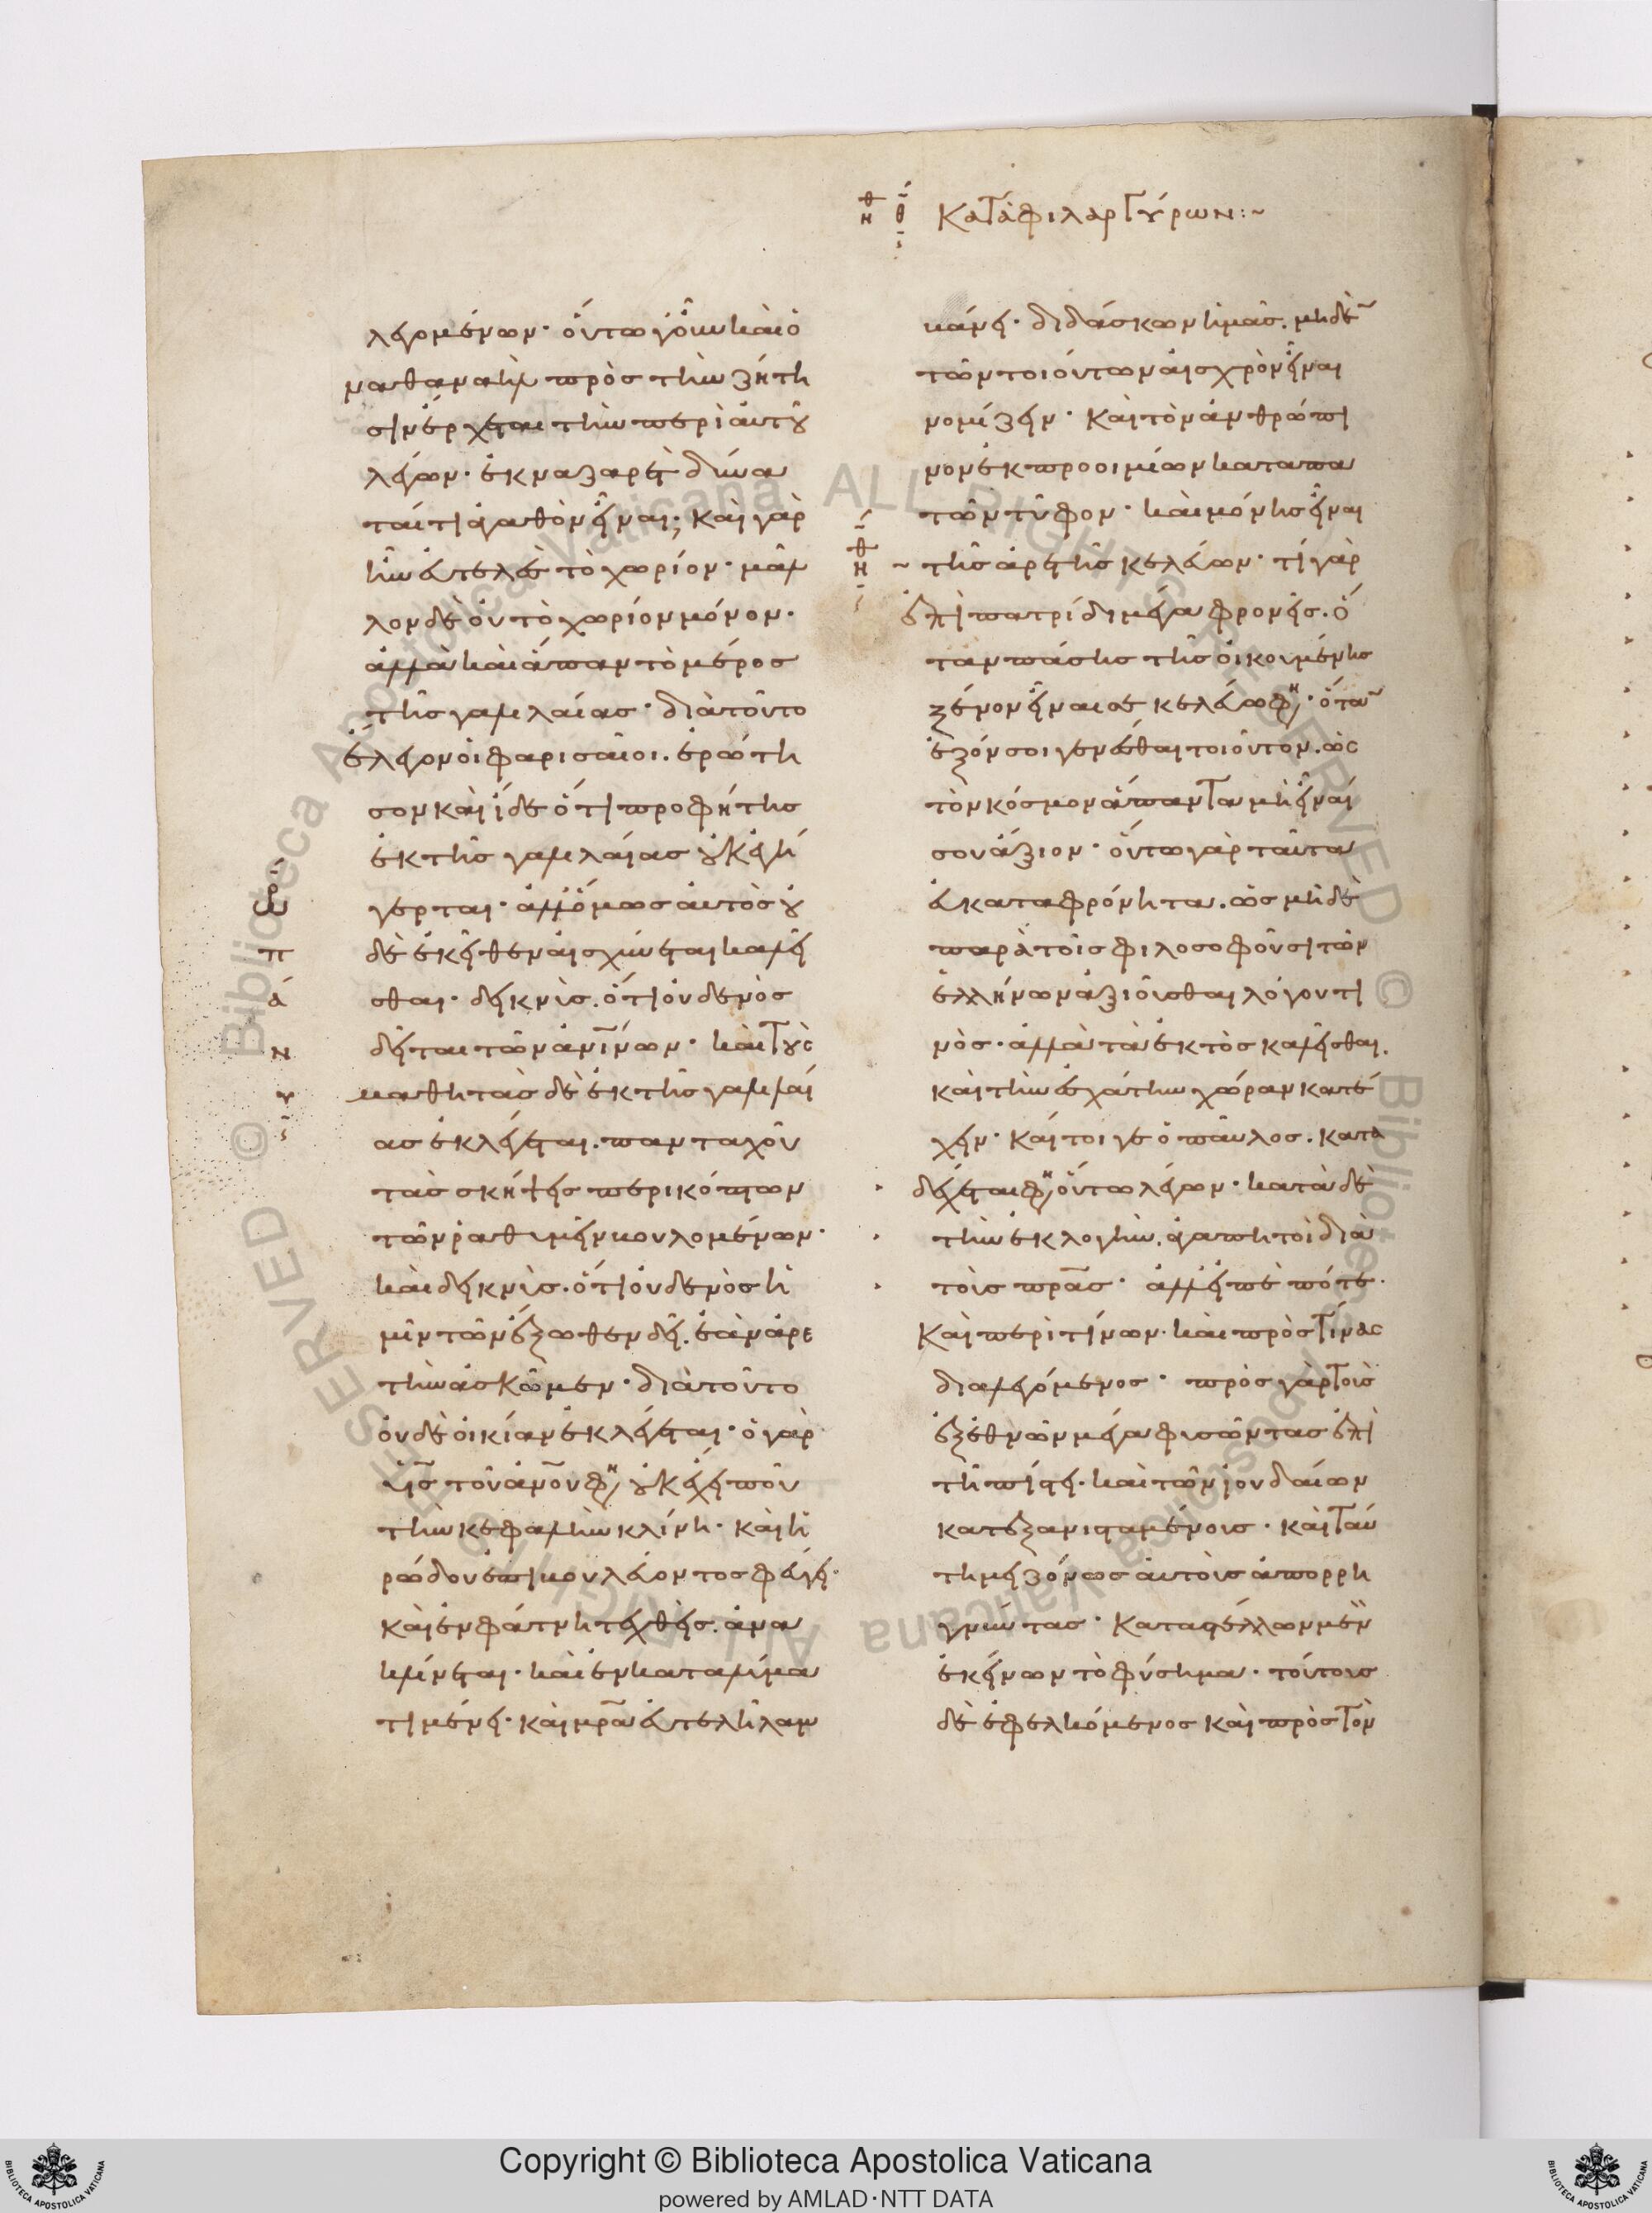 Κατὰ φιλαργύρων :~
λεγομένων· οὕτω γοῦν καὶ ὁ
ναθαναὴλ πρὸς τὴν ζήτη
σιν ἔρχεται τὴν περὶ αὐτοῦ
λέγων· ἐκ ναζαρὲτ δύνα
ταί τι ἀγαθὸν εἶναι; Καὶ γὰρ
ἦν εὐτελὲς τὸ χωρίον· μᾶλ
λον δὲ οὐ τὸ χωρίον μόνον·
ἀλλὰ καὶ ἅπαν τὸ μέρος
τῆς γαλιλαίας· διὰ τοῦτο
ἔλεγον οἱ φαρισαῖοι. ἐρώτη
σον καὶ ἴδε ὅτι προφήτης
ἐκ τῆς γαλιλαίας οὐκ ἐγή
γερται· ἀλλ' ὅμως αὐτὸς οὐ
δὲ ἐκεῖθεν αἰσχύνεται καλεῖ
σθαι· δεικνὺς. ὅτι οὐδενὸς
δεῖται τῶν ἀνίνων· καὶ τοὺς
μαθητὰς δὲ ἐκ τῆς γαλιλαί
ας ἐκλέγεται. πανταχοῦ
τὰς σκήψεις περικόπτων
τῶν ῥαθυμεῖν βουλομένων·
καὶ δεικνὺς. ὅτι οὐδενὸς ἡ
μῖν τῶν ἔξωθεν δεῖ. ἐὰν ἀρε
τὴν ἀσκῶμεν· διὰ τοῦτο
οὐδὲ οἰκίαν ἐκλέγεται· ὁ γὰρ
υἱὸς τοῦ ἀνου φη, οὐκ ἔχει ποῦ
τὴν κεφαλὴν κλίνη· καὶ ἡ
ρώδου ἐπιβουλεύοντος φεύγει·
καὶ ἐν φάτνη τεχθεὶς. ἀνα
κλίνεται· καὶ ἐν καταλύμα
τι μένει· καὶ μρα εὐτελῆ λαμ
βάνει· διδάσκων ἡμᾶς. μηδὲν
τῶν τοιούτων αἰσχρὸν εἶναι
νομίζειν· Καὶ τὸν ἀνθρώπι
νον ἐκ προοιμίων καταπα
τῶν τῦφον· καὶ μόνης εἶναι
τῆς ἀρετῆς κελεύων· τί γὰρ
ἐπὶ πατρίδι μέγα φρονεῖς. ὅ
ταν πάσης τῆς οἰκουμένης
ξένον εἶναι σε κελεύω φη, · ὅταν
ἐξόν σοι γενέσθαι τοιοῦτον. ὡς
τὸν κόσμον ἅπαντα μὴ εἶναί
σου ἄξιον· οὕτω γὰρ ταῦτα
εὐκαταφρόνητα. ὡς μηδὲ
παρὰ τοῖς φιλοσοφοῦσι τῶν
ἑλλήνων ἀξιοῦσθαι λόγου τι
νὸς· ἀλλὰ τὰ ἐκτὸς καλεῖσθαι.
καὶ τὴν ἐσχάτην χώραν κατέ
χειν· Καίτοι γε ὁ παῦλος. κατα
δέχεται φη, οὕτω λέγων· κατὰ δὲ
τὴν ἐκλογὴν. ἀγαπητοὶ διὰ
τοὺς πρας· ἀλλ' εἰπὲ πότε·
Καὶ περὶ τίνων· καὶ πρὸς τίνας
διαλεγόμενος· πρὸς γὰρ τοὺς
ἐξ ἐθνῶν μέγα φυσῶντας ἐπὶ
τῆ πίστει· καὶ τῶν ἰουδαίων
κατεξανισταμένους· καὶ ταύ
τη μειζόνως αὐτοὺς ἀπορρη
γνύντας· Καταστέλλων μὲν
ἐκείνων τὸ φύσημα· τούτους
δὲ ἐφελκόμενος καὶ πρὸς τὸν